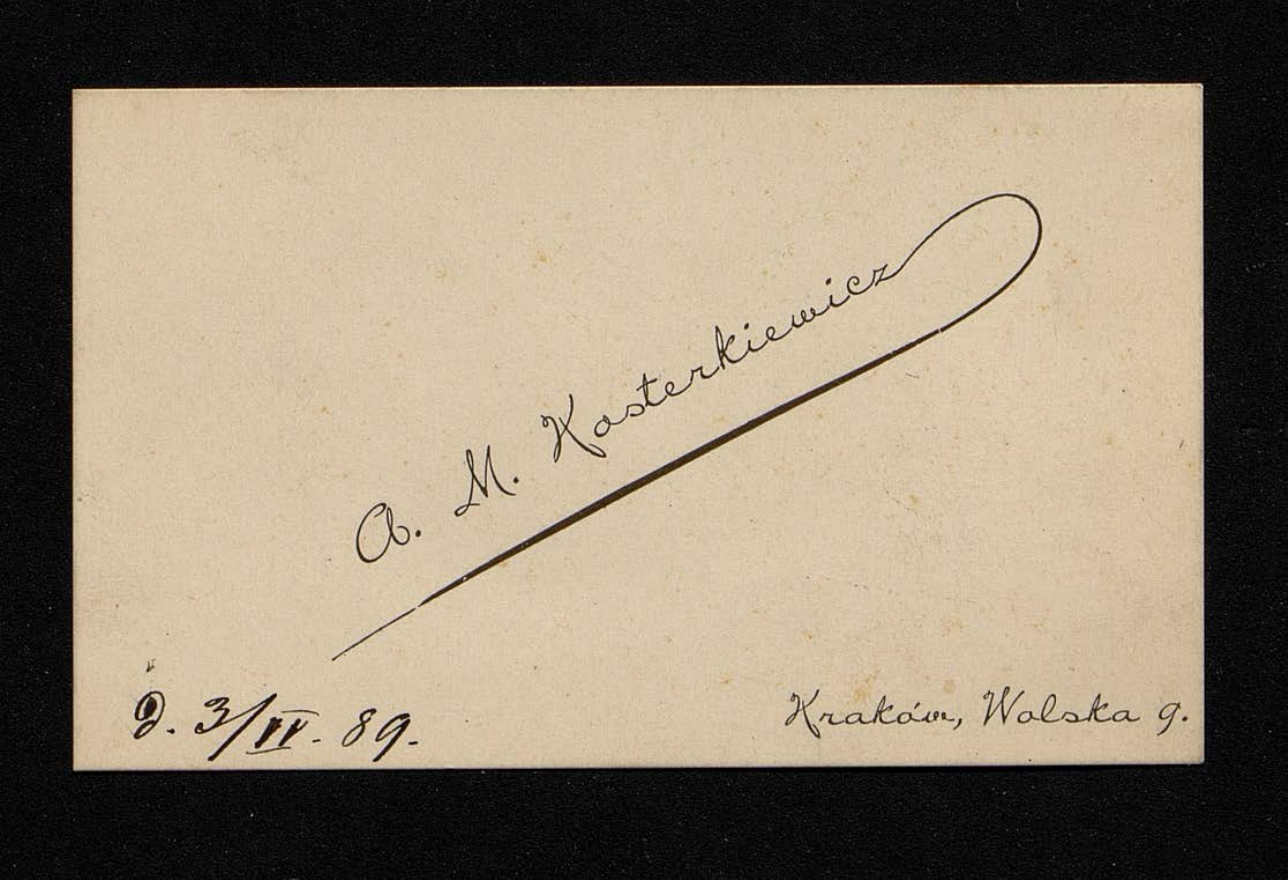 A. M. Kosterkiewicz
d. 3/IV. 89.
Kraków, Wolska 9.